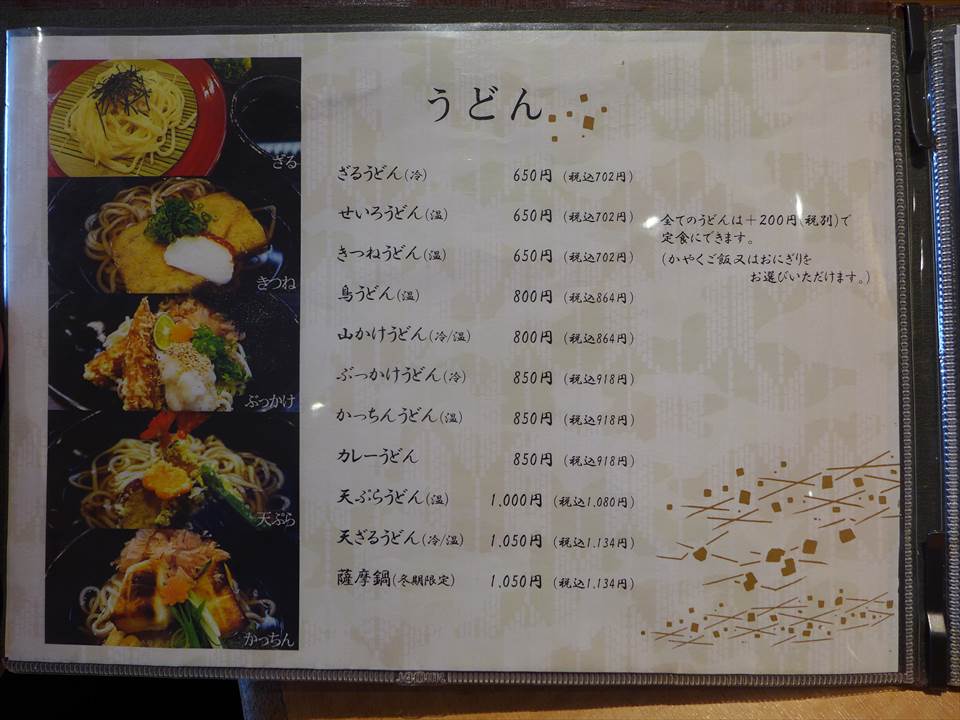 うどん
ざるうどん(冷) 650円 (税込702円)
せいろうどん(温) 650円 (税込702円)
きつねうどん(温) 650円 (税込702円)
鳥うどん(温) 800円 (税込864円)
山かけうどん(冷/温) 800円 (税込864円)
ぶっかけうどん(冷) 850円 (税込918円)
かっちんうどん(温) 850円 (税込918円)
カレーうどん 850円 (税込918円)
天ぷらうどん(温) 1.000円 (税込1.080円)
天ざるうどん(冷/温) 1.050円 (税込1.134円)
薩摩鍋(冬期限定) 1.050円 (税込1.134円)
全てのうどんは+200円(税別)で
定食にできます。
(かやくご飯又はおにぎりを
お選びいただけます。)
ざる
きつね
ぶっかけ
天ぷら
かっちん